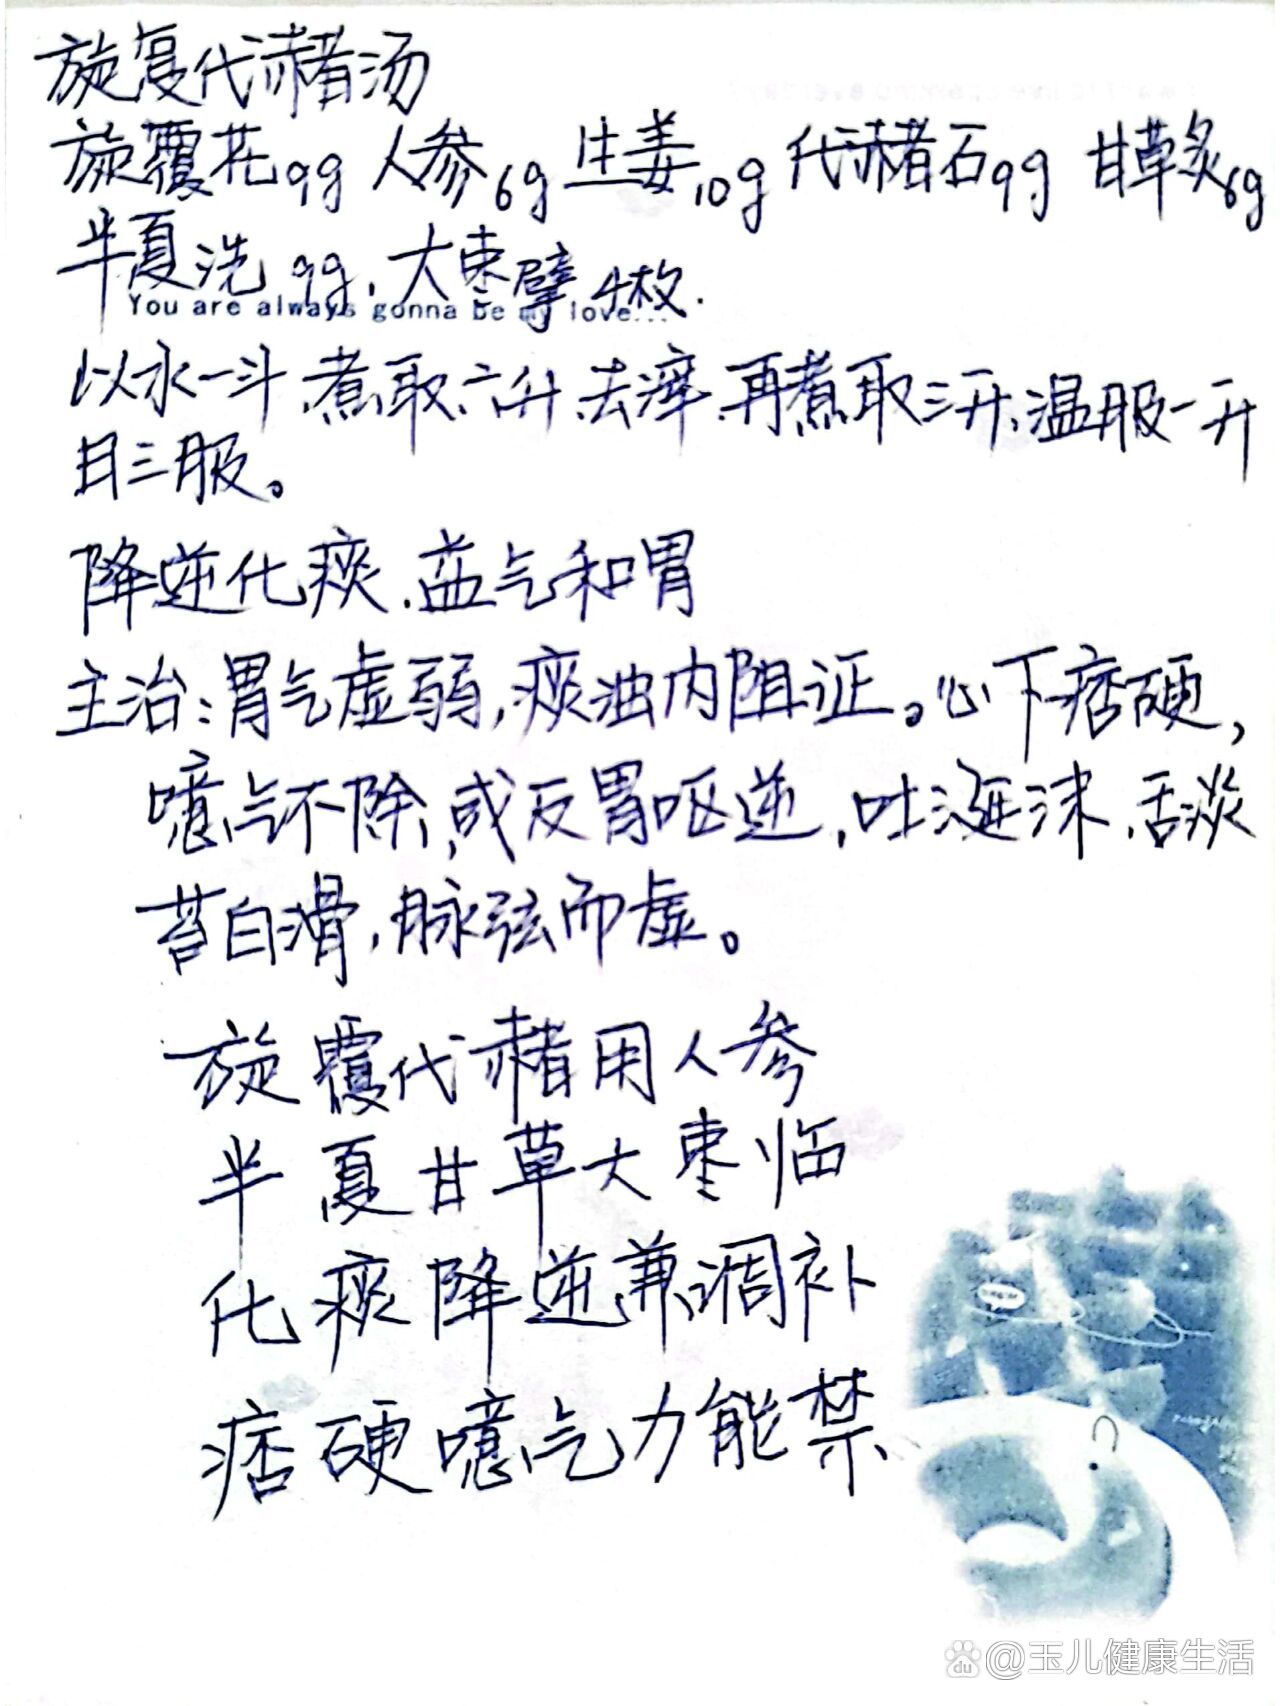 旋复代赭汤
旋覆花9g 人参6g 生姜10g 代赭石9g 甘草炙6g
半夏洗 9g, 大枣擘 4枚.
You are always gonna be my love...
以水一斗,煮取六升,去滓,再煮取三升,温服一升
日三服。
降逆化痰.益气和胃
主治:胃气虚弱,痰浊内阻证。心下痞硬,
噫气不除,或反胃呕逆,吐涎沫,舌淡
苔白滑,脉弦而虚。
旋覆代赭用人参
半夏甘草大枣临
化痰降逆兼调补
痞硬噫气力能禁
@玉儿健康生活